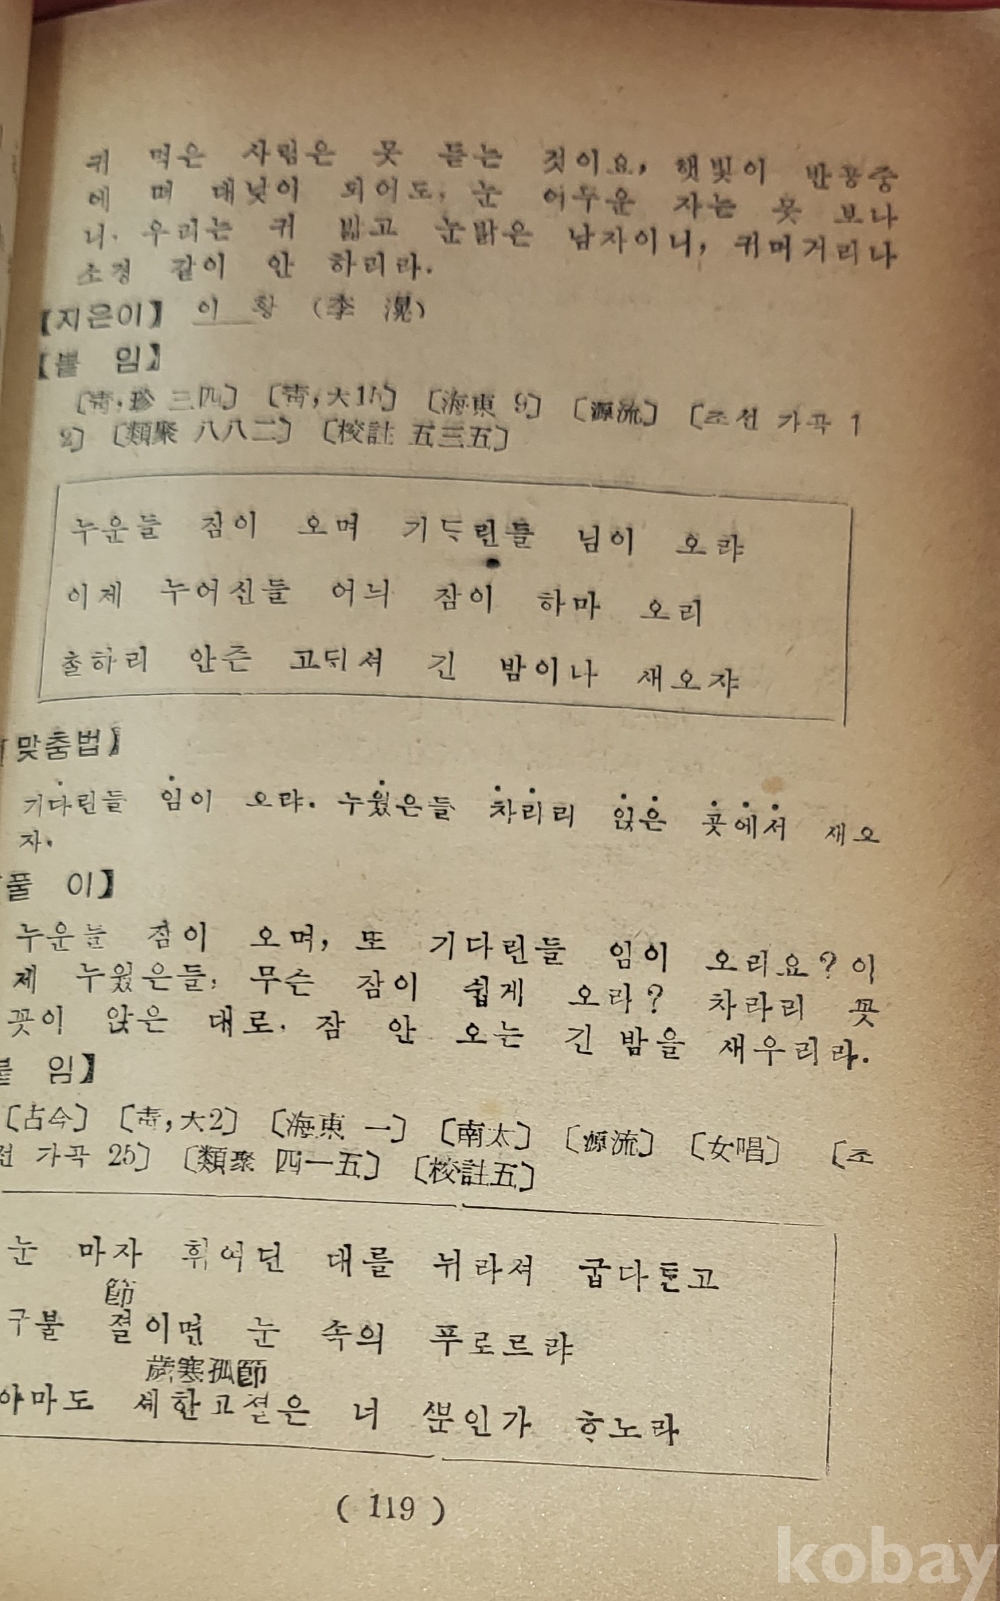 귀 먹은 사람은 못 듣는 것이요, 햇빛이 반공중
에 떠 대낮이 되어도, 눈 어두운 자는 못 보나
니. 우리는 귀 밝고 눈밝은 남자이니, 귀머거리나
소경 같이 안 하리라.
【지은이】 이 황 (李 滉)
【붙 임】
〔靑,珍 三四〕 〔靑,大15〕 〔海東 9〕 〔源流〕 〔조선 가곡 1
2〕 〔類聚 八八二〕 〔校註 五三五〕
누운들 잠이 오며 기ᄃᆞ린들 님이 오랴
이제 누어신들 어늬 잠이 하마 오리
출하리 안즌 고ᄃᆡ셔 긴 밤이나 새오쟈
맞춤법】
기다린들 임이 오랴. 누웠은들 차라리 앉은 곳에서 새오
자.
풀 이】
누운들 잠이 오며, 또 기다린들 임이 오리요? 이
제 누웠은들, 무슨 잠이 쉽게 오랴? 차라리 꼿
꼿이 앉은 대로, 잠 안 오는 긴 밤을 새우리라.
붙 임】
〔古今〕 〔靑,大2〕 〔海東 一〕 〔南太〕 〔源流〕 〔女唱〕 〔조
선 가곡 25〕 〔類聚 四一五〕 〔校註五〕
눈 마자 휘어딘 대를 뉘라셔 굽다톤고
節
구블 졀이면 눈 속의 푸로르랴
歲寒孤節
아마도 셰한고졀은 너 ᄲᅮᆫ인가 ᄒᆞ노라
( 119 )
kobay